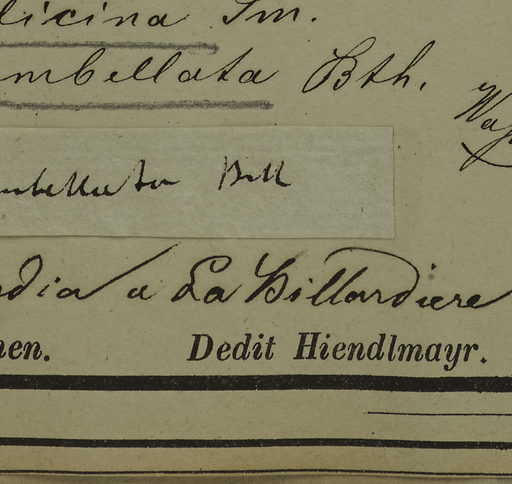 licina Sm.
mbellata Bth.
umbellata Bill
ndia a La Billardiere
nen. Dedit Hiendlmayr.